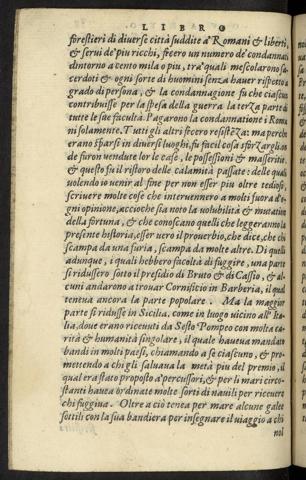 LIBRO
forestieri di diverse città suddite a' Romani & liberti,
& serui de' piu ricchi, fecero un numero de' condannati
dintorno a cento mila o piu, tra' quali mescolarono sa-
cerdoti & ogni sorte di huomini senza hauer rispetto a
grado di persona, & la condannagione fu che ciascuno
contribuisse per la spesa della guerra la terza parte di
tutte le sue facultà. Pagarono la condannatione i Roma
ni solamente. Tutti gli altri fecero resistēza: ma perche
erano sparsi in diuersi luoghi, fu facil cosa sforzargli, on
de furon vendute lor le case, le possessioni & masseritie,
& questo fu il ristoro delle calamità passate: delle quali
uolendo io uenir al fine per non esser piu oltre tedioso,
scriuere molte cose che interuennero a molti fuora d'o-
gni opinione, accioche sia noto la uolubilità & mutation
della fortuna, & che conoscano quelli che leggerannola
presente historia, esser vero il prouerbio, che dice, che chi
scampa da una furia, scampa da molte altre. Di quelli
adunque, i quali hebbero facoltà di fuggire, una parte
si ridussero sotto il presidio di Bruto & di Cassio, & al-
cuni andarono a trouar Cornificio in Barberia, il qual
teneua ancora la parte popolare. Ma la maggior
parte si ridusse in Sicilia, come in luogo uicino all'Ita-
lia, doue erano riceuuti da Sesto Pompeo con molta ca-
rità & humanità singolare, il quale haueua mandato
bandi in molti paesi, chiamando a se ciascuno, & pro-
mettendo a chi gli saluaua la metà piu del premio, il
qual era stato proposto a' percussori, & per li mari circo-
stanti haueа ordinate molte sorti di nauili per riceuere
chi fuggiua. Oltre a ciò tenea per mare alcune galee
sottili con la sua bandiera per insegnare il uiaggio a chi
nol